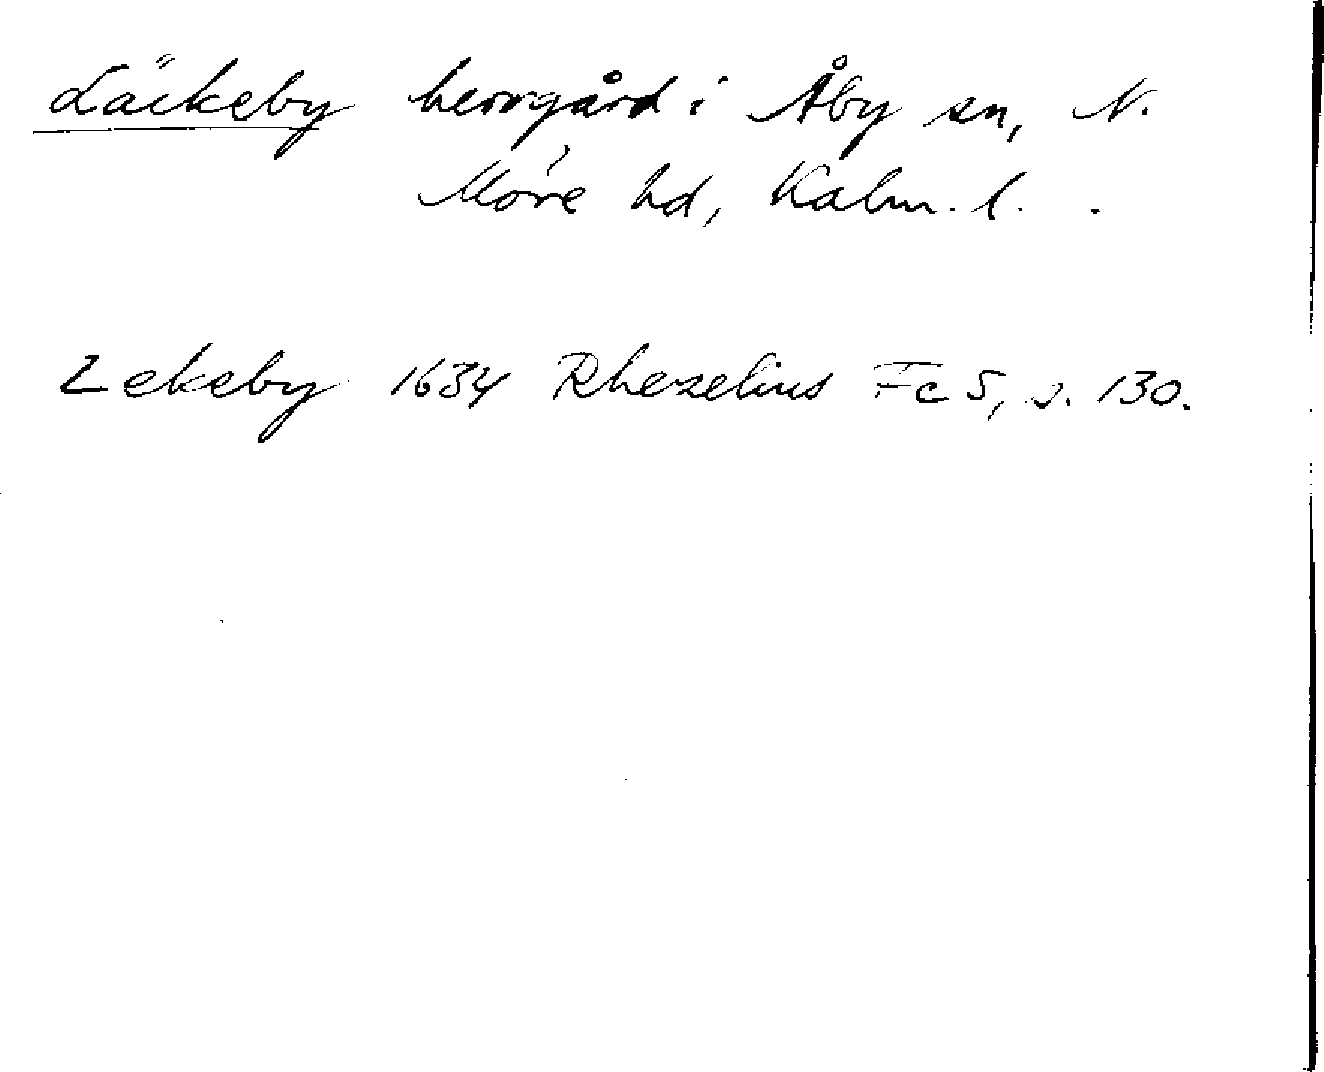 Läckeby herrgård i Åby sn, N.
Möre hd, Kalm. l. .
Lekeby 1634 Rhezelius Fc 5, s. 130.